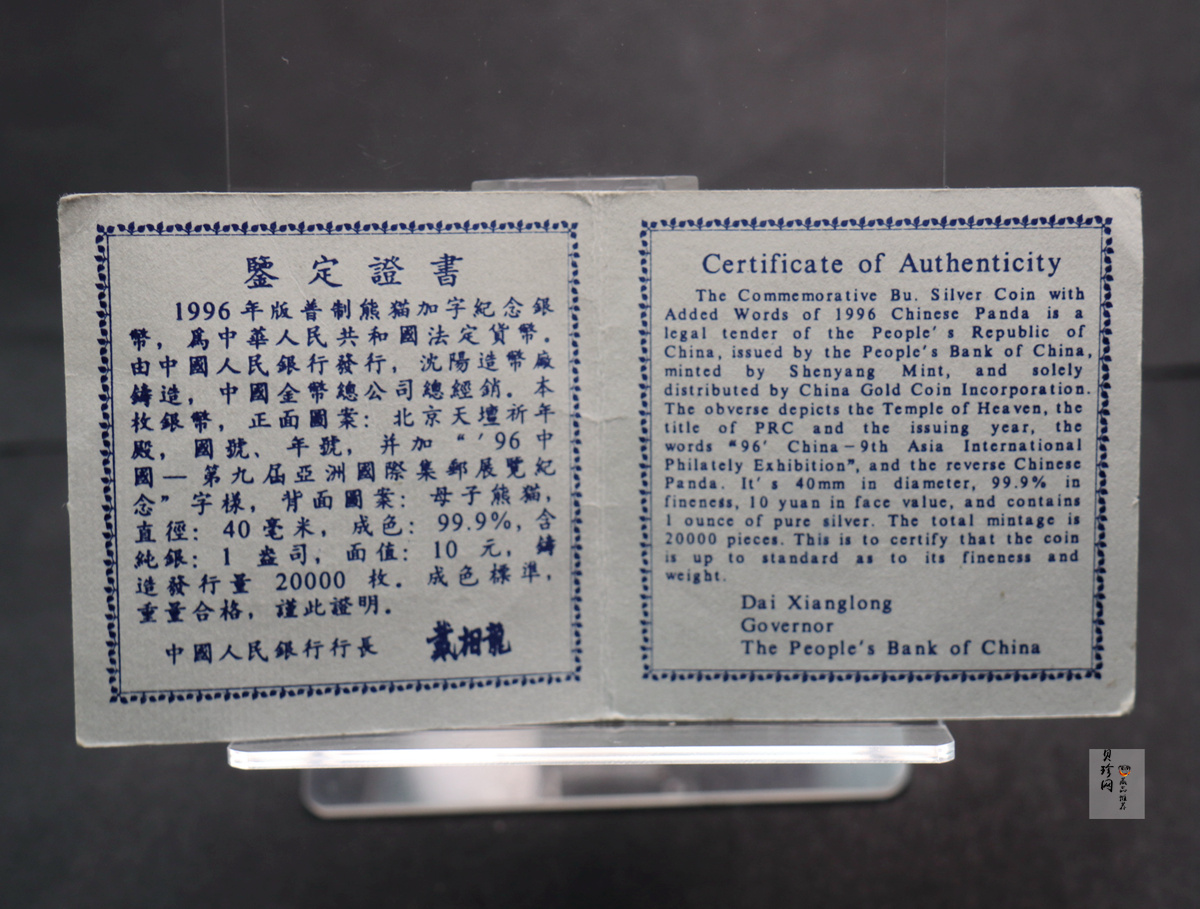 鑒定證書
1996年版普制熊猫加字紀念銀
幣，爲中華人民共和國法定貨幣。
由中國人民銀行發行，沈陽造幣廠
鑄造，中國金幣總公司總經銷。本
枚銀幣，正面圖案：北京天壇祈年
殿，國號、年號，并加“'96中
國—第九届亞洲國際集郵展覽紀
念”字樣，背面圖案：母子熊猫，
直徑：40毫米，成色：99.9%，含
純銀：1盎司，面值：10元，鑄
造發行量 20000 枚。成色標準，
重量合格，謹此證明。
中國人民銀行行長 戴相龍
Certificate of Authenticity
The Commemorative Bu. Silver Coin with
Added Words of 1996 Chinese Panda is a
legal tender of the People's Republic of
China, issued by the People's Bank of China,
minted by Shenyang Mint, and solely
distributed by China Gold Coin Incorporation.
The obverse depicts the Temple of Heaven, the
title of PRC and the issuing year, the
words “96' China-9th Asia International
Philately Exhibition”, and the reverse Chinese
Panda. It's 40mm in diameter, 99.9% in
fineness, 10 yuan in face value, and contains
1 ounce of pure silver. The total mintage is
20000 pieces. This is to certify that the coin
is up to standard as to its fineness and
weight.
Dai Xianglong
Governor
The People's Bank of China
贝珍网
藏品推荐